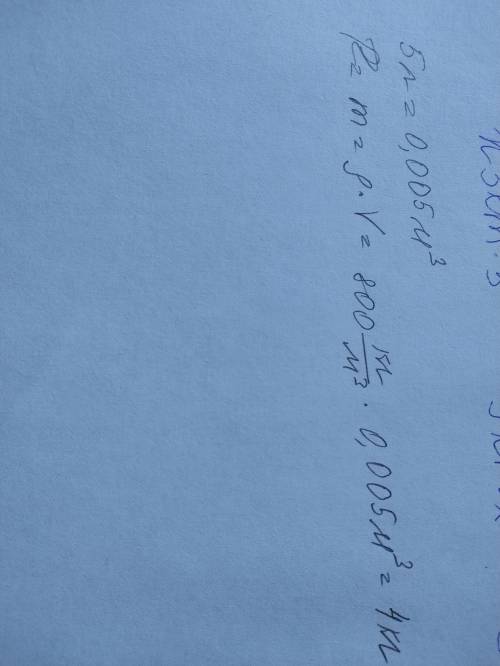 5л = 0,005 м³
m = ρ · V = 800 кг/м³ · 0,005 м³ = 4 кг